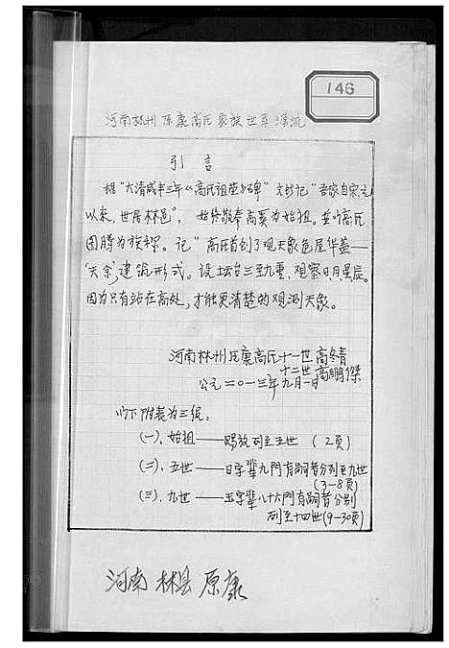 146
河南林州原康高氏家族世系源流
引言
据"大清咸丰三年《高氏祖茔》碑"文抄记"吾家自宋元
以来,世居林邑"。始终敬奉高翼为始祖。并以高氏
图腾为族辉。记"高氏首创了观天象危屋华盖—
"天佘"建筑形式。设坛台三至九重,观察日月星辰。
因为只有站在高处,才能更清楚的观测天象。
河南林州原康高氏十一世高冬青
十二世高鹏傑
公元二0一三年九月一日
以下附表为三级:
(一)、始祖——赐 列至五世 (2页)
(二)、五世——日字辈九门有嗣者分列至九世
(3-8页)
(三)、九世——玉字辈八十六门有嗣者分别
列至十四世(9-30页)
河南林县原康